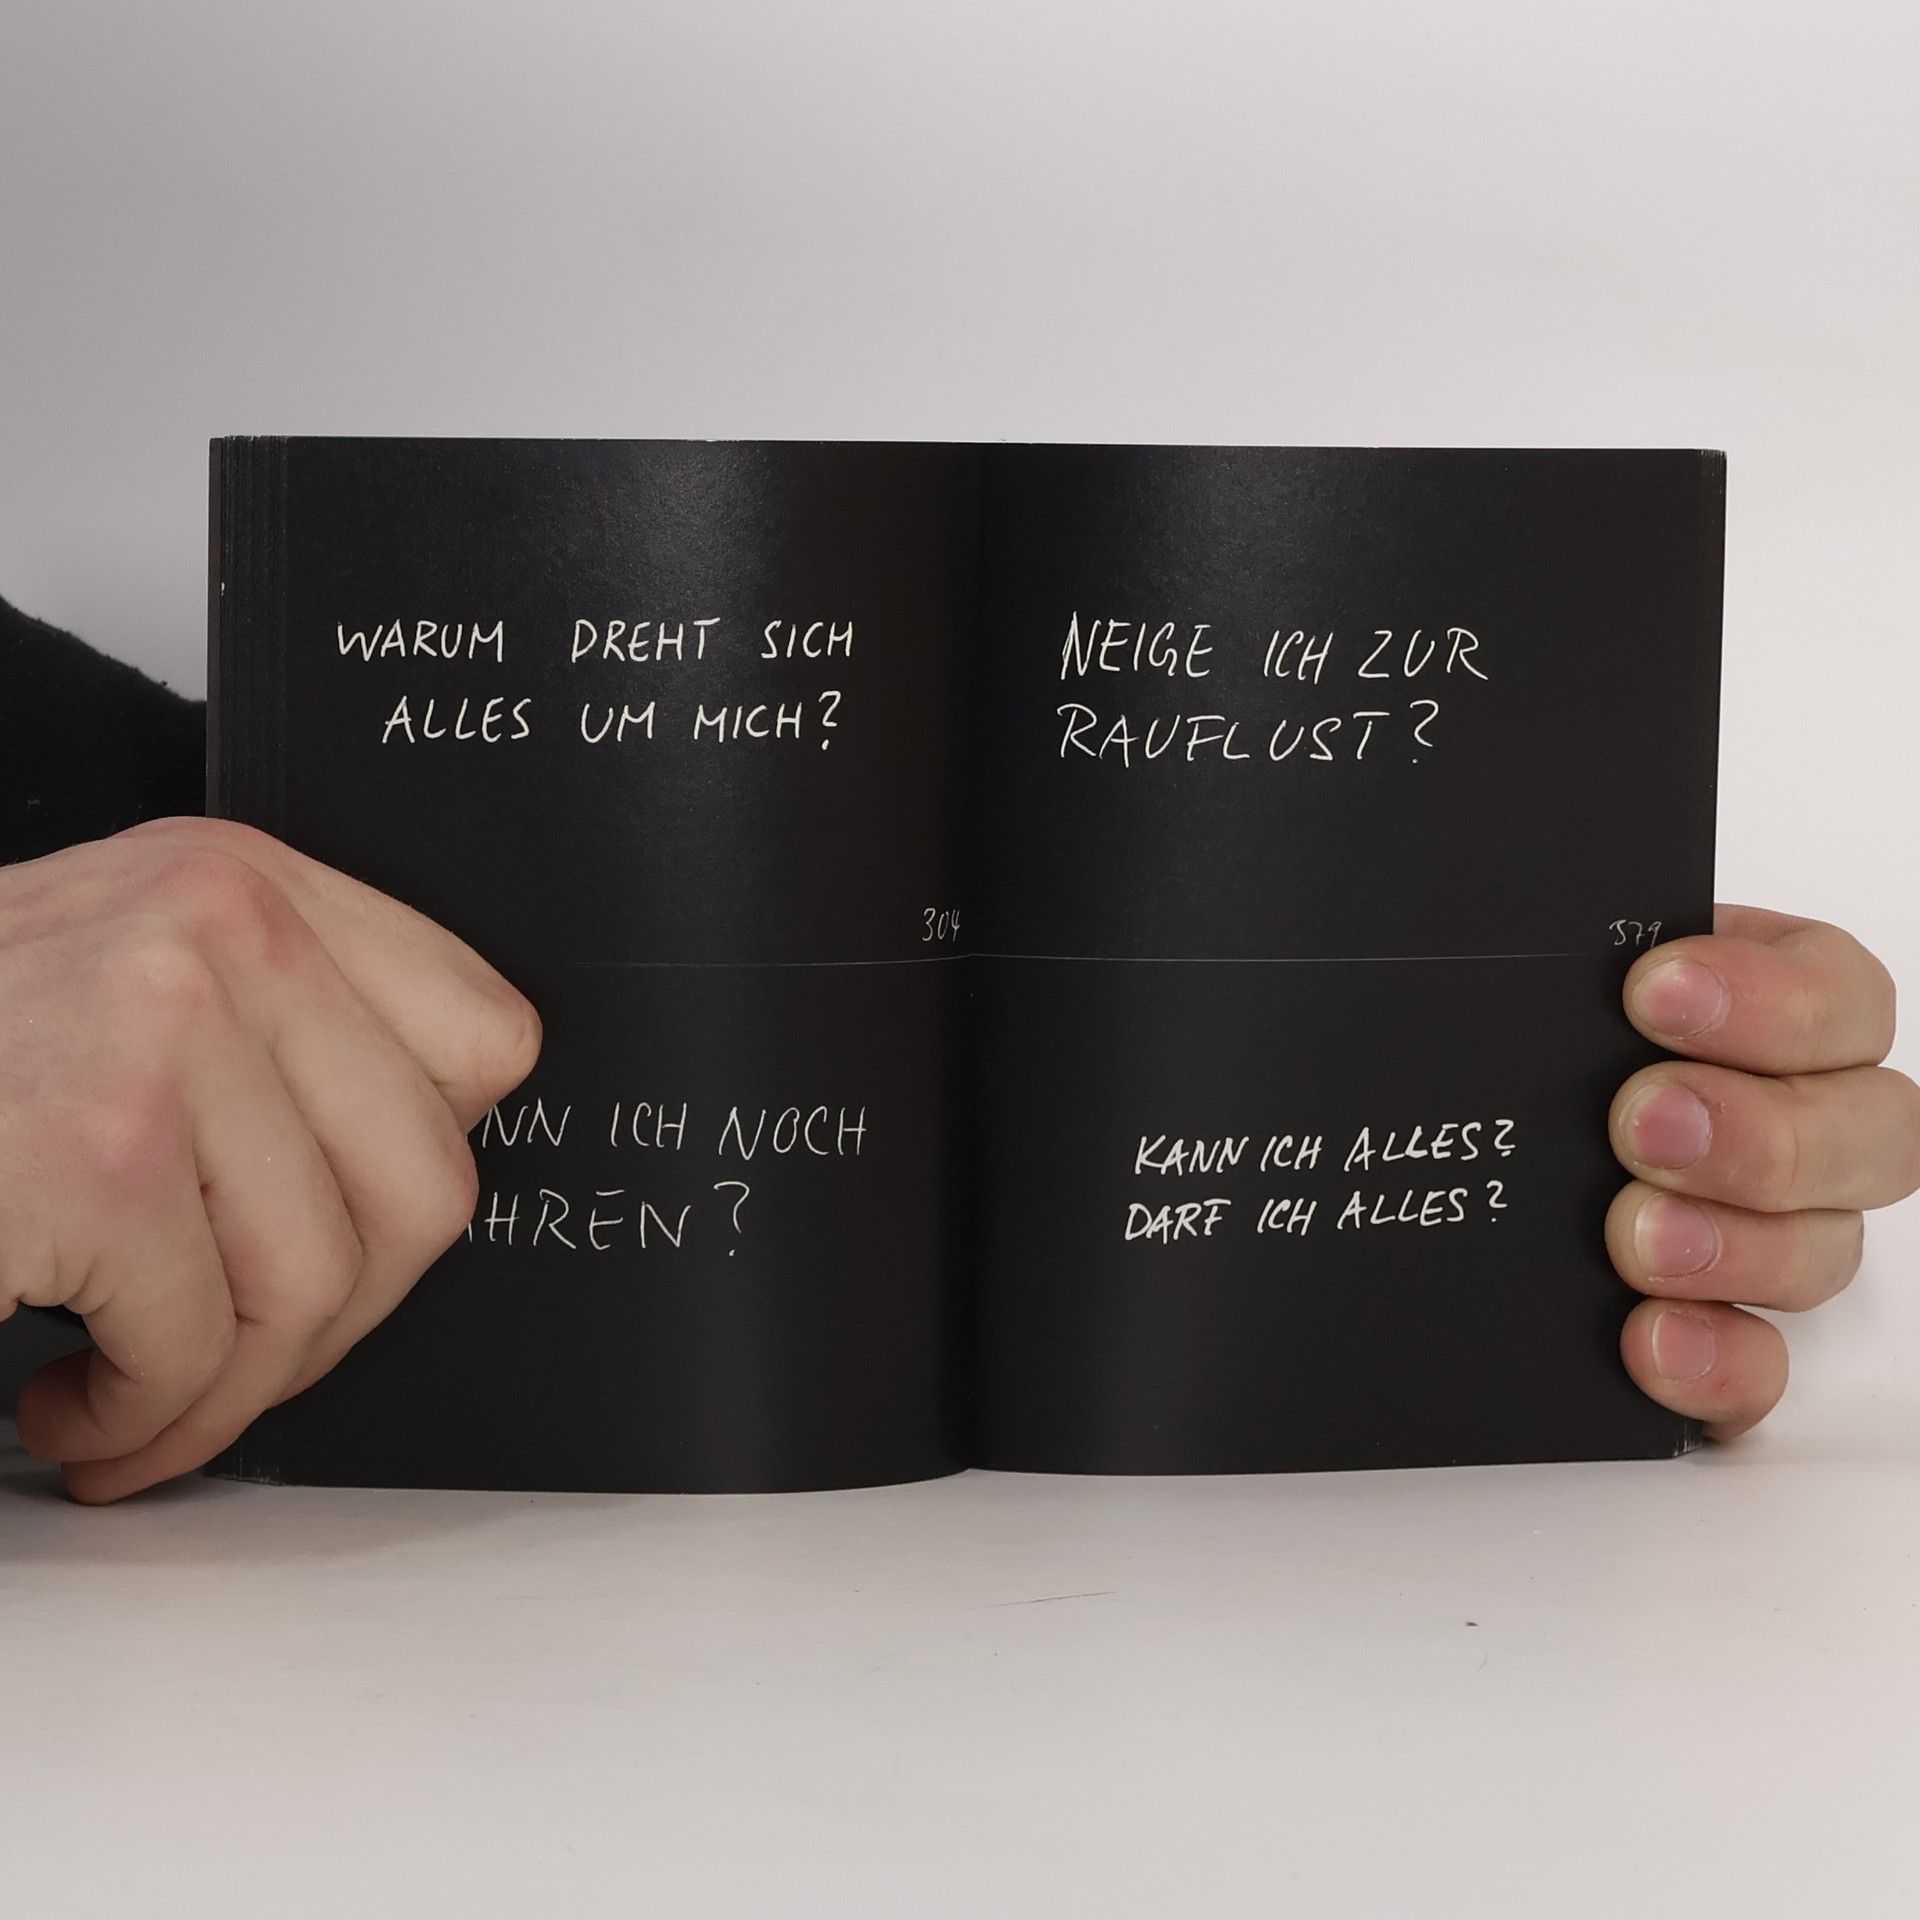 WARUM DREHT SICH
ALLES UM MICH?
304
ICH NOCH
NEIGE ICH ZUR
RAUFLUST?
379
KANN ICH ALLES?
DARF ICH ALLES?